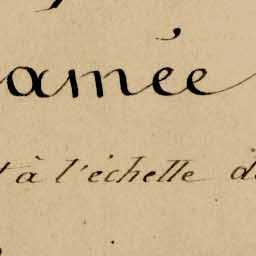 amée
t à l'échelle de